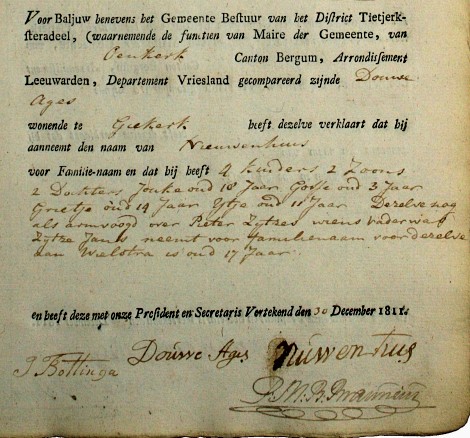 Voor Baljuw benevens het Gemeente Bestuur van het District Tietjerk-
steradeel, (waarnemende de functien van Maire der Gemeente, van
Oenkerk Canton Bergum, Arrondissement
Leeuwarden, Departement Vriesland gecompareerd zijnde Douwe
Ages
wonende te Giekerk heeft dezelve verklaart dat hij
aanneemt den naam van Nieuwenhuis
voor Familie-naam en dat hij heeft 4 kinders 2 Zoons
2 Dochters Jouke oud 18 Jaar Gosse oud 3 Jaar
Grietje oud 14 Jaar Ytje oud 11 Jaar Dezelve nog
als armvoogd over Pieter Zytzes wiens vader was
Zytze Jans neemt voor familienaam voor dezelve
aan Wielstra is oud 17 Jaar
en heeft deze met onze President en Secretaris Vertekend den 30 December 1811.
J Bottinga Douwe Ages Niuwenhuis